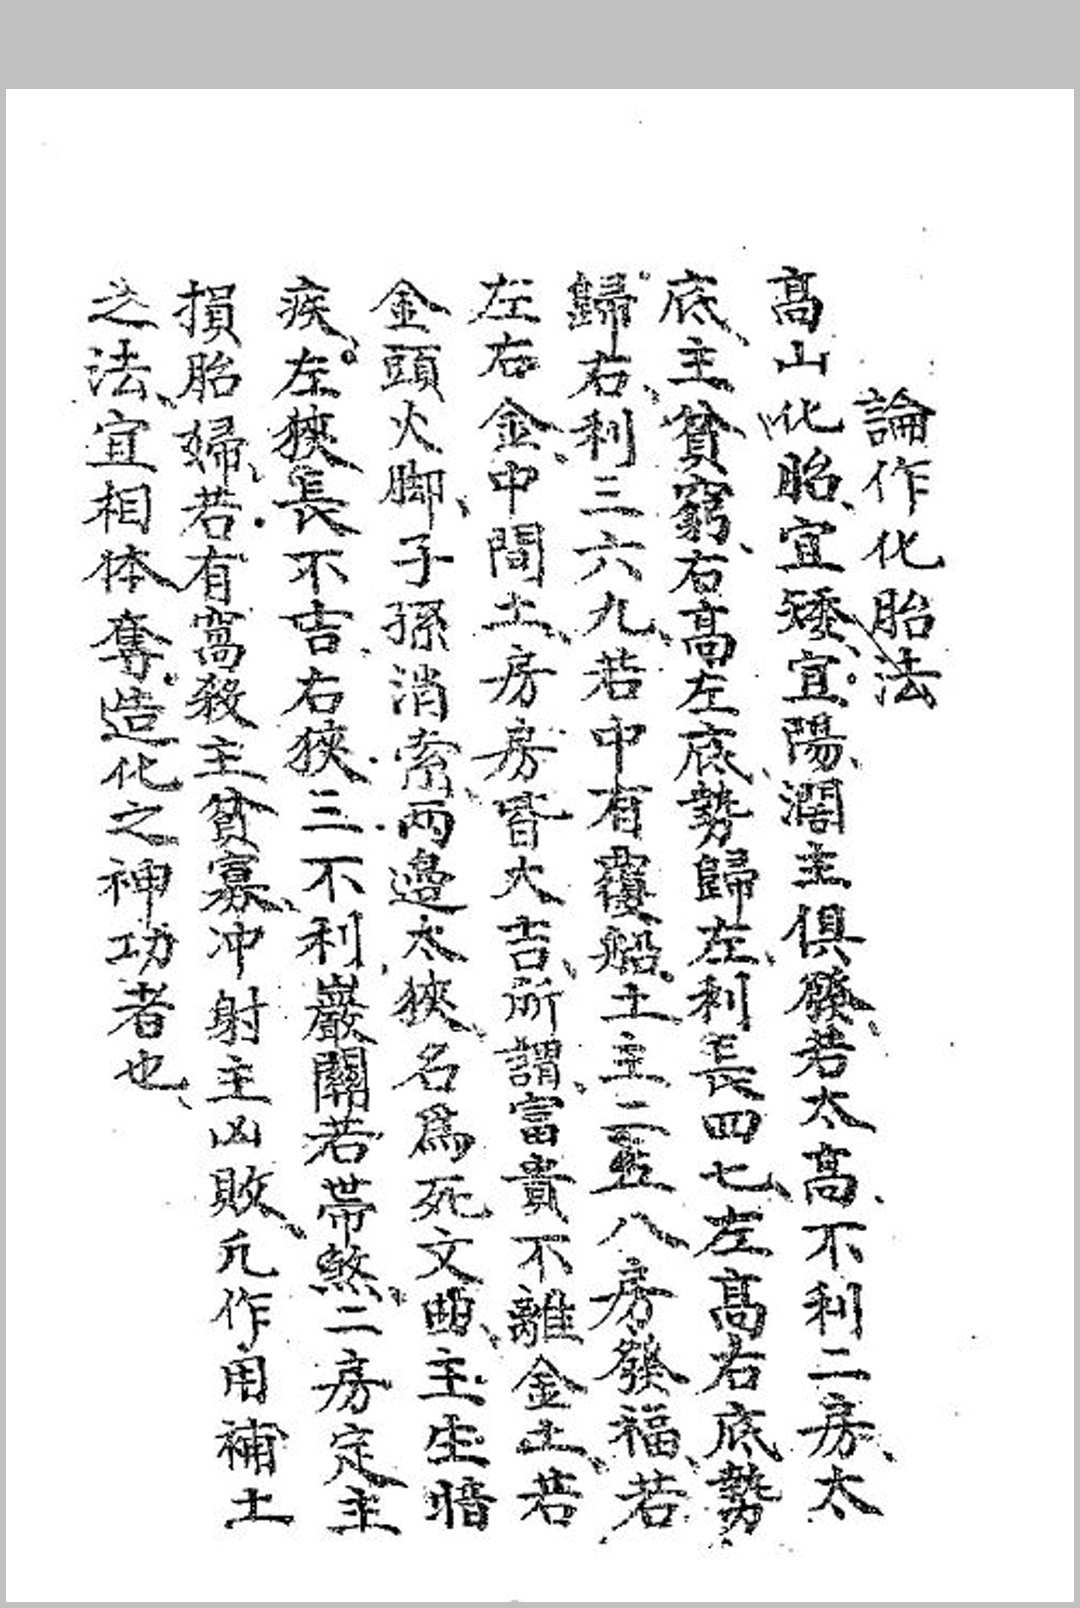 論作化胎法
高山化胎、宜矮、宜陽、濶主俱發、若太高、不利二房、太
底、主貧窮、右高左底、勢歸左、利長四七、左高右底勢
歸右、利三六九、若中有覆船土主二五八房發福、若
左右金、中間土、房房皆大吉、所謂、富貴不離金土、若
金頭火脚、子孫消索、兩邊太狹、名為死文曲、主生暗
疾、左狹長不吉、右狹三不利、嚴關若帶煞、二房定主
損胎婦、若有窩殺主貧寡、冲射主凶敗、凢作用補土
之法、宜相体奪造化之神功者也、